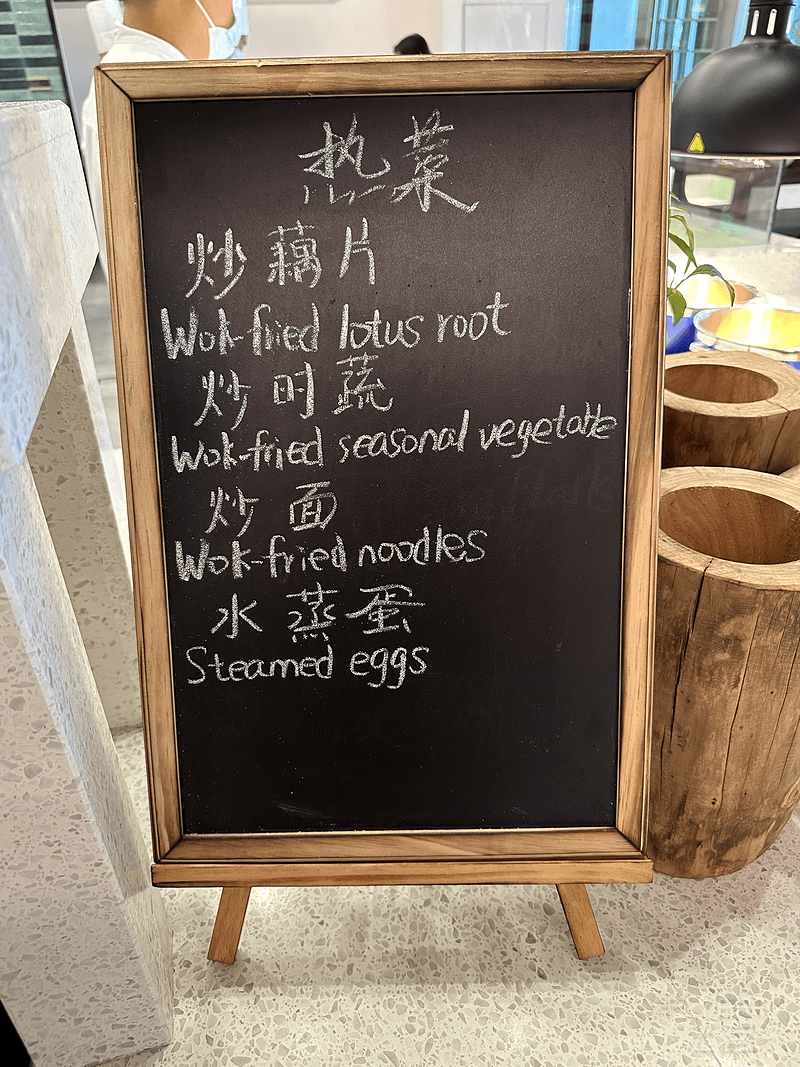 热菜
炒藕片
Wok-fried lotus root
炒时蔬
Wok-fried seasonal vegetable
炒面
Wok-fried noodles
水蒸蛋
Steamed eggs